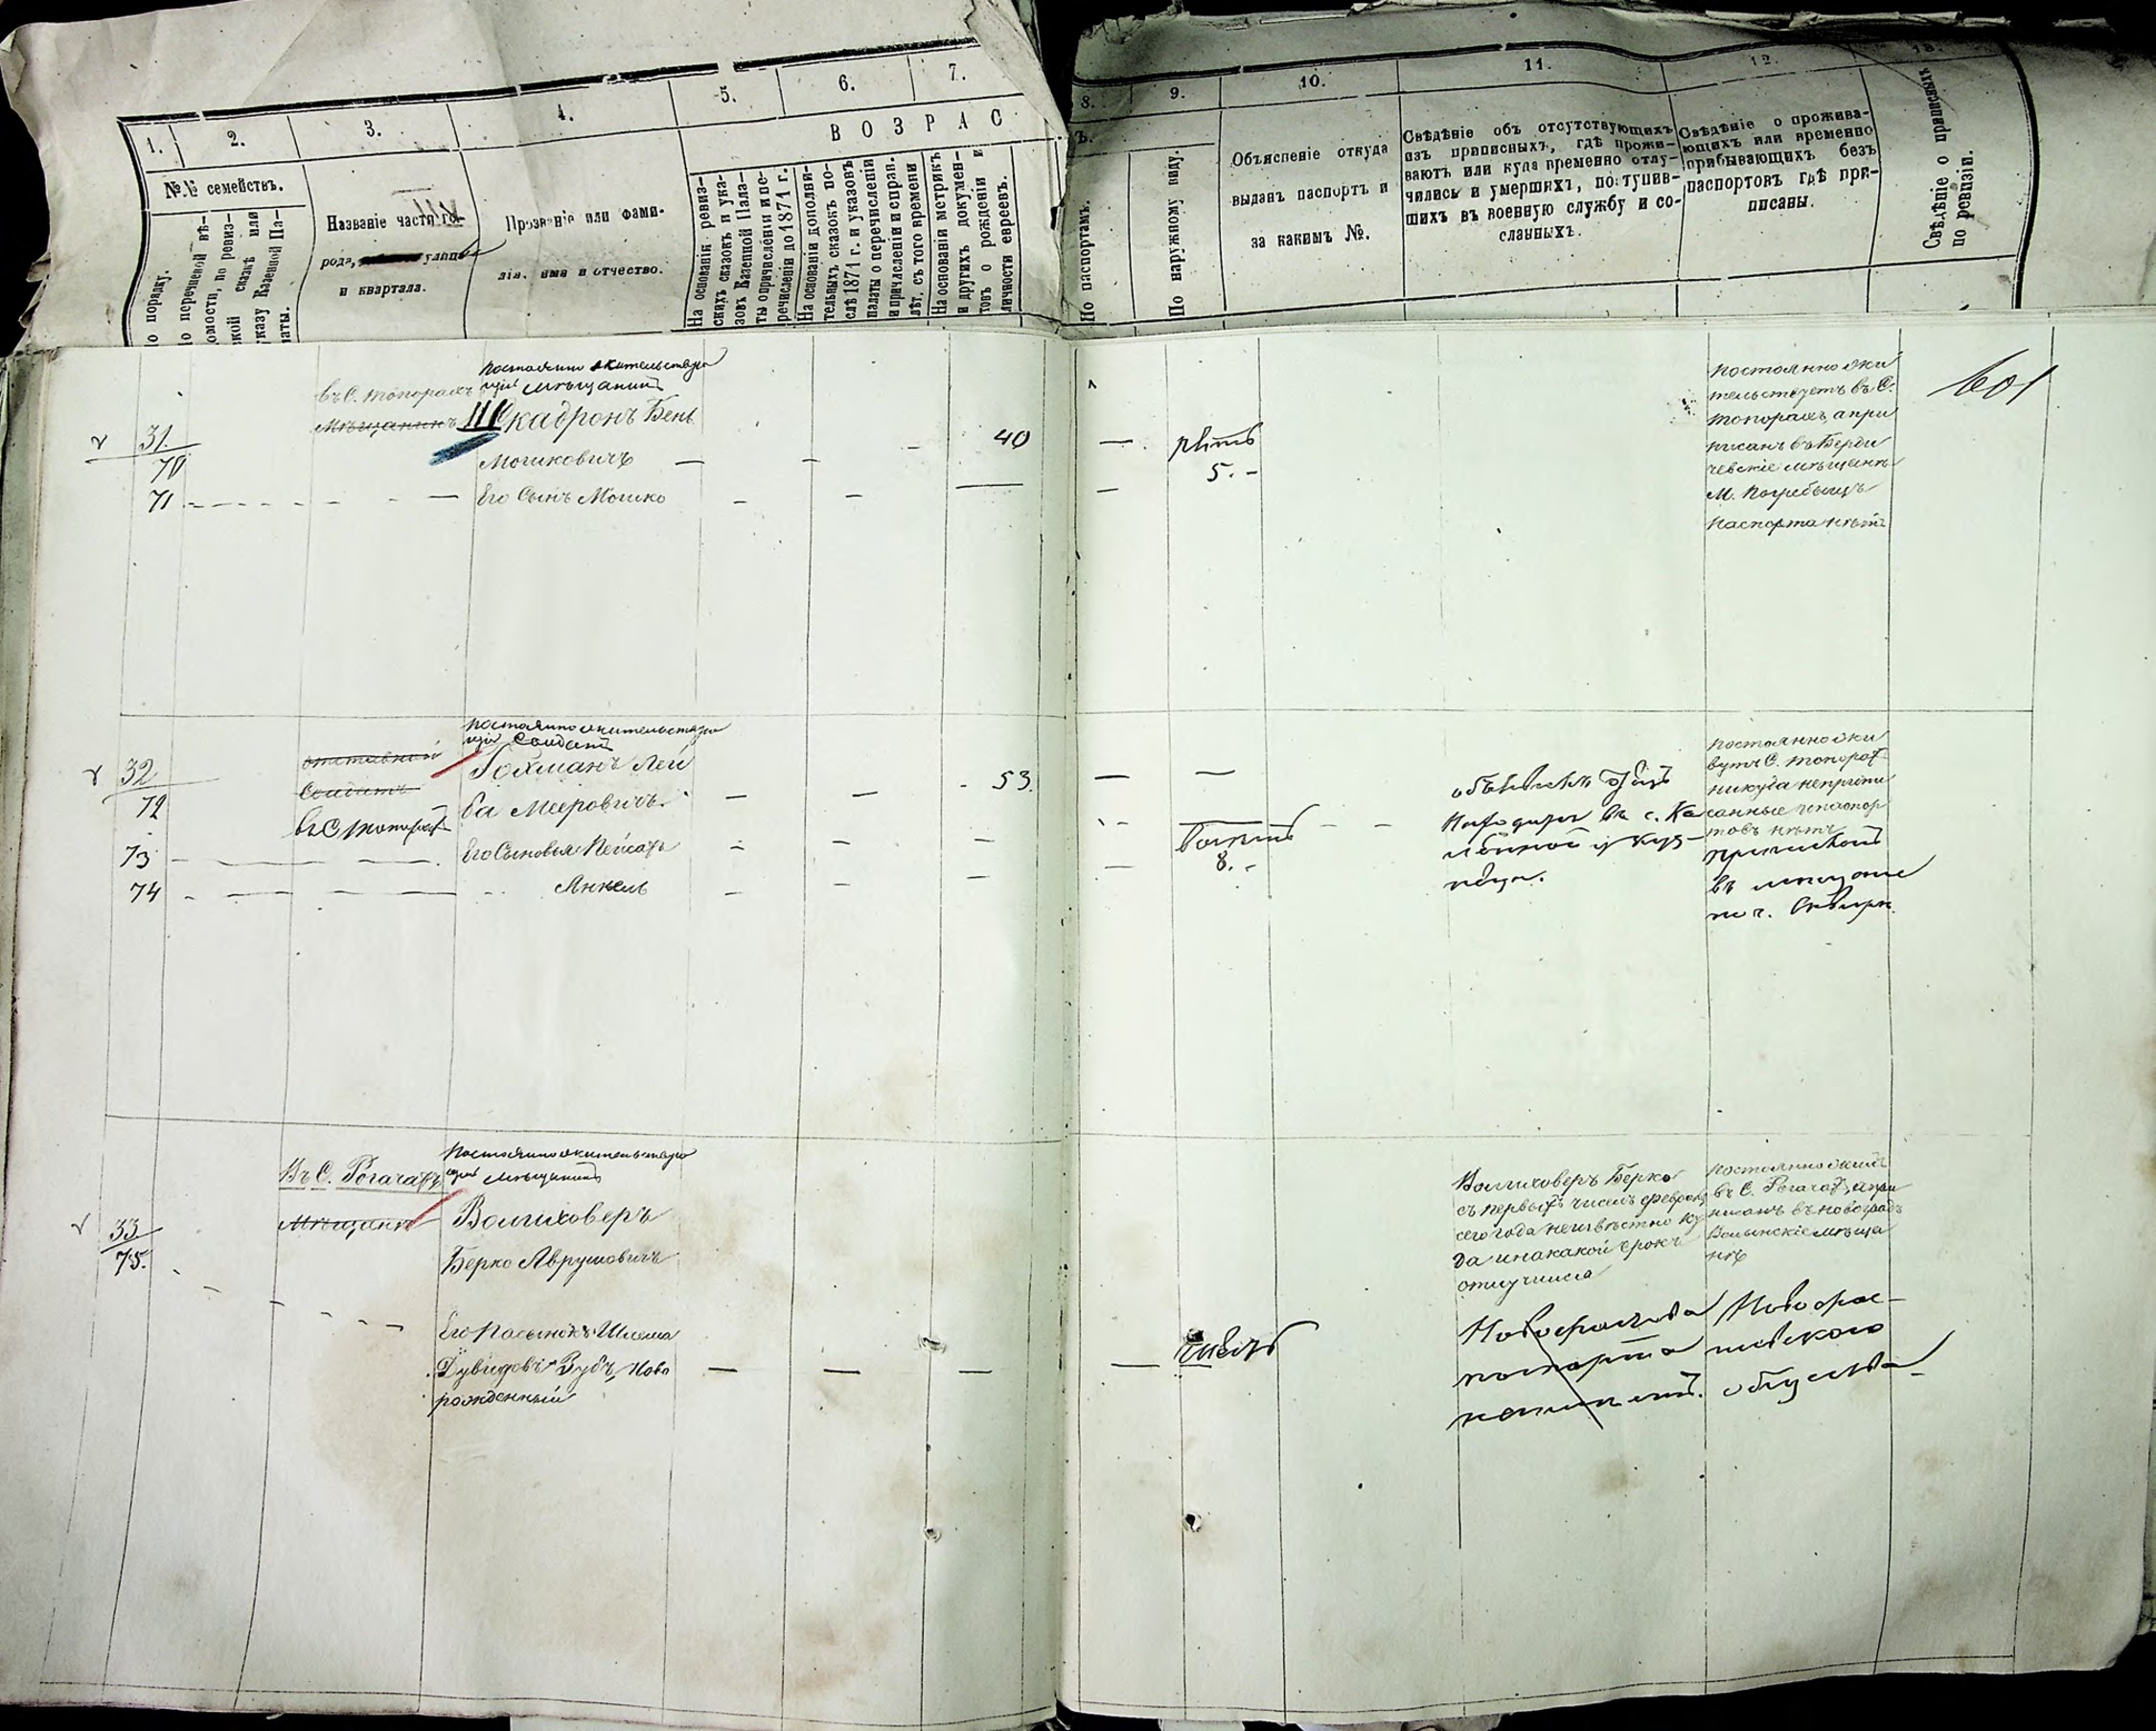 1.
2.
3.
4.
5.
6.
7.
В О З Р А С
№№ семействъ.
о порядку.
о перечневой вѣ-
домости, по ревиз-
ской сказкѣ или
указу Казенной Па-
латы.
Названіе части го-
рода, улицы
и квартала.
Прозваніе или фами-
лія, имя и отчество.
На основаніи ревиз-
скихъ сказокъ и ука-
зовъ Казенной Пала-
ты о причисленіи и пе-
речисленіи до 1871 г.
На основаніи дополни-
тельныхъ сказокъ по-
слѣ 1871 г. и указовъ
палаты о перечисленіи
и причисленіи и справ.
лѣт. съ того времени
На основаніи метрикъ
и другихъ докумен-
товъ о рожденіи и
личности евреевъ.
8.
9.
10.
11.
12.
13.
Ъ.
По паспортамъ.
По наружному виду.
Объясненіе откуда
выданъ паспортъ и
за какимъ №.
Свѣдѣніе объ отсутствующихъ
изъ приписныхъ, гдѣ прожи-
ваютъ или куда временно отлу-
чились и умершихъ, поступив-
шихъ въ военную службу и со-
сланныхъ.
Свѣдѣніе о прожива-
ющихъ или временно
прибывающихъ безъ
паспортовъ гдѣ при-
писаны.
Свѣдѣніе о приписныхъ
по ревизіи.
31
70
въ С. Топорахъ
Мѣщанинъ
постоянно жительствую
щій мѣщанинъ
Шкадронъ Бень
Мошковичъ
40
71
Его Сынъ Мошко
5.
постоянно жи
тельствуетъ въ С.
Топорахъ, а при
писанъ въ Берди
чевскіе мѣщане
М. Погребищъ
паспорта нѣтъ
601
32
72
отставной
Солдатъ
въ С Топорахъ
постоянно жительствую
щій Солдатъ
Гохманъ Лей
ба Мееровичъ
53
73
Его Сыновья Пейсахъ
8.
74
Янкель
постоянно жи
вутъ С. Топорахъ
никуда неприпи
санные и паспор
товъ нѣтъ
33
75.
Въ С. Рогачахъ
Мѣщанинъ
Постоянно жительствую
щій мѣщанинъ
Волиховеръ
Берко Аврумовичъ
Его Пасынокъ Шлема
Дувидовъ Зубъ, Ново
рожденный
Волиховеръ Берко
съ первыхъ чиселъ февраля
сего года неизвѣстно ку
да и на какой срокъ
отлучился
постоянно живетъ
въ С. Рогачахъ, а при
писанъ въ Новоградъ
Волынскіе мѣща
не
общества